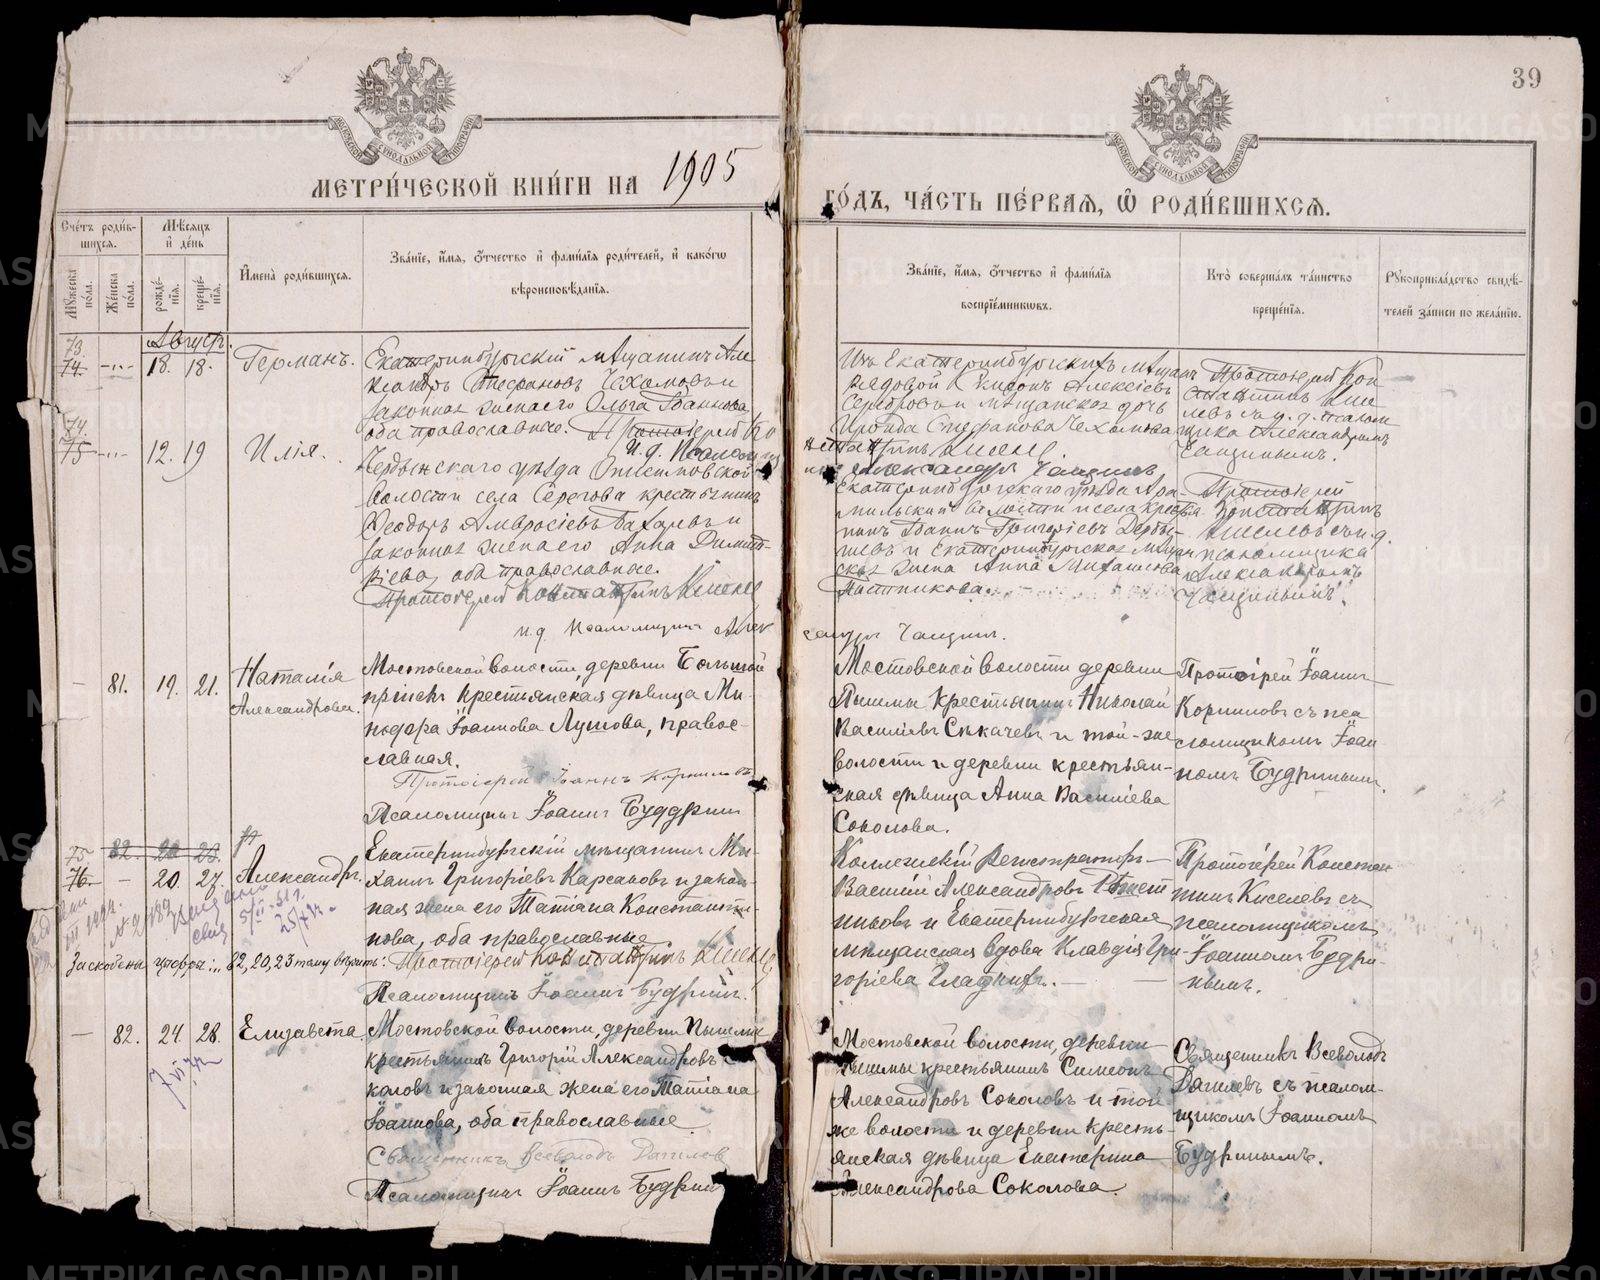 39
МЕТРИ́ЧЕСКОЙ КНИ́ГИ НА 1905
ГО́ДЪ, ЧА́СТЬ ПЕ́РВАЯ, Ѽ РОДИ́ВШИХСЯ.
Сче́тъ роди́вшихся.
Мѣ́сяцъ и҆ де́нь
Мꙋ́жеска по́ла.
Же́нска по́ла.
рожде́нїѧ.
креще́нїѧ.
И҆мена̀ роди́вшихсѧ.
Зва́нїе, и҆́мѧ, ѻ҆́тчество и҆ фами́лїѧ роди́телей, и҆ како́гѡ
вѣроисповѣ́данїѧ.
Зва́нїе, и҆́мѧ, ѻ҆́тчество и҆ фами́лїѧ
воспрїе́мниковъ.
Кто̀ соверша́лъ та́инство
креще́нїѧ.
Рꙋкоприкла́дство свидѣ́-
телей за́писи по жела́нїю.
Августъ.
73.
74. 18. 18. Германъ.
Екатеринбургскій мѣщанинъ Але
ксандръ Стефановъ Чехомовъ и
законная жена его Ольга Иванова
оба православные. Протоіерей Ко
Изъ Екатеринбургскихъ мѣщанъ
рядовой Алексіевъ
Серебровъ и мѣщанская дочь
Ираида Стефанова Чехомова
Протоіерей Кон
стантинъ Кисе
левъ съ и. д. псалом
щика Александромъ
Чащинымъ.
нстантинъ Киселе
И. д. Псаломщи
ка Александръ Чащинъ
74.
75 12. 19 Илія.
Чердынскаго уѣзда
волости села Серегова крестьянинъ
Ѳеодоръ Амвросіевъ и
законная жена его Анна Димит-
ріева, оба православные.
Протоіерей Константинъ Киселе
и. д. Псаломщика Алек
сандръ Чащинъ.
Екатеринбургскаго уѣзда Ара-
мильской волости и села кресть
нинъ Иванъ Григоріевъ
шевъ и Екатеринбургская мѣщан
ская жена Анна
Постникова.
Протоіерей
Константинъ
Киселевъ съ и. д.
псаломщика
Александромъ
Чащинымъ.
— 81. 19. 21. Наталія
Александрова.
Мостовской волости, деревни Большой
крестьянская дѣвица Ми-
нодора Іоаннова Лушова, правос-
лавная.
Протоіерей Іоаннъ Корниловъ
Псаломщикъ Іоаннъ Будринъ
Мостовской волости деревни
Пышмы крестьянинъ Николай
Василіевъ Сѣкачевъ и той-же
волости и деревни крестьян-
ская дѣвица Анна Василіева
Соколова.
Протоіерей Іоаннъ
Корниловъ съ пса
ломщикомъ Іоан-
номъ Будринымъ.
75 82. 20 23.
76. — 20. 27. Александръ.
Екатеринбургскій мѣщанинъ Ми-
хаилъ Григоріевъ Карсаковъ и закон-
ная жена его Татіана Константи-
нова, оба православные
Заскоблены цифры: 82, 20, 23 тому вѣрить: Протоіерей Константинъ Киселе
Псаломщикъ Іоаннъ Будринъ.
Коллежскій Регистраторъ
Василій Александровъ
никовъ и Екатеринбургская
мѣщанская вдова Клавдія Гри-
горіева Гладкихъ.
Протоіерей Констан
тинъ Киселевъ съ
псаломщикомъ
Іоанномъ Будри-
нымъ.
— 82. 24. 28. Елизавета.
Мостовской волости, деревни Пышмы
крестьянинъ Григорій Александровъ Со
коловъ и законная жена его Татіана
Іоаннова, оба православные.
Священникъ Всеволодъ Дягилев
Псаломщикъ Іоаннъ Будрин
Мостовской волости, деревни
Пышмы крестьянинъ Симеонъ
Александровъ Соколовъ и той
же волости и деревни кресть-
янская дѣвица Екатерина
Александрова Соколова.
Священникъ Всеволодъ
Дягилевъ съ псалом-
щикомъ Іоанномъ
Будринымъ.
METRIKI.GASO-URAL.RU